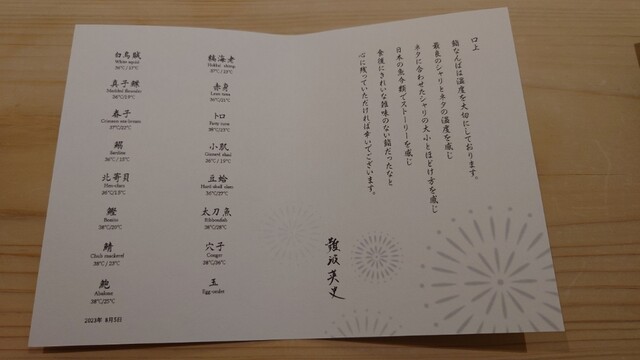 口上
鮨なんばは温度を大切にしております。
最良のシャリとネタの温度を感じ
ネタに合わせたシャリの大小とほどけ方を感じ
日本の魚介類でストーリーを感じ
食後にきれいな雑味のない鮨だったなと
心に残っていただければ幸いでございます。
難波英史
縞海老
赤身
Lean tuna
トロ
Fatty tuna
小肌
Gizzard shad
36℃ / 19℃
豆蛤
Hard-shell clam
太刀魚
Ribbonfish
38℃/38℃
穴子
Conger
38℃/36℃
玉
Egg omlet
白烏賊
White squid
36℃ / 17℃
真子鰈
Marbled flounder
36℃/19℃
春子
Crimson sea bream
37℃/22℃
鰯
Sardine
36℃ / 15℃
北寄貝
Hen-clam
36℃/13℃
鰹
Bonito
38℃/20℃
鯖
Chub mackerel
38℃ / 23℃
鮑
Abalone
38℃/25℃
2023年 8月5日